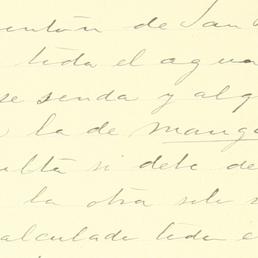 entón de San
toda el agua
se senda y alg
la de manga
ulta si debe de
la otra solo s
alculada toda e